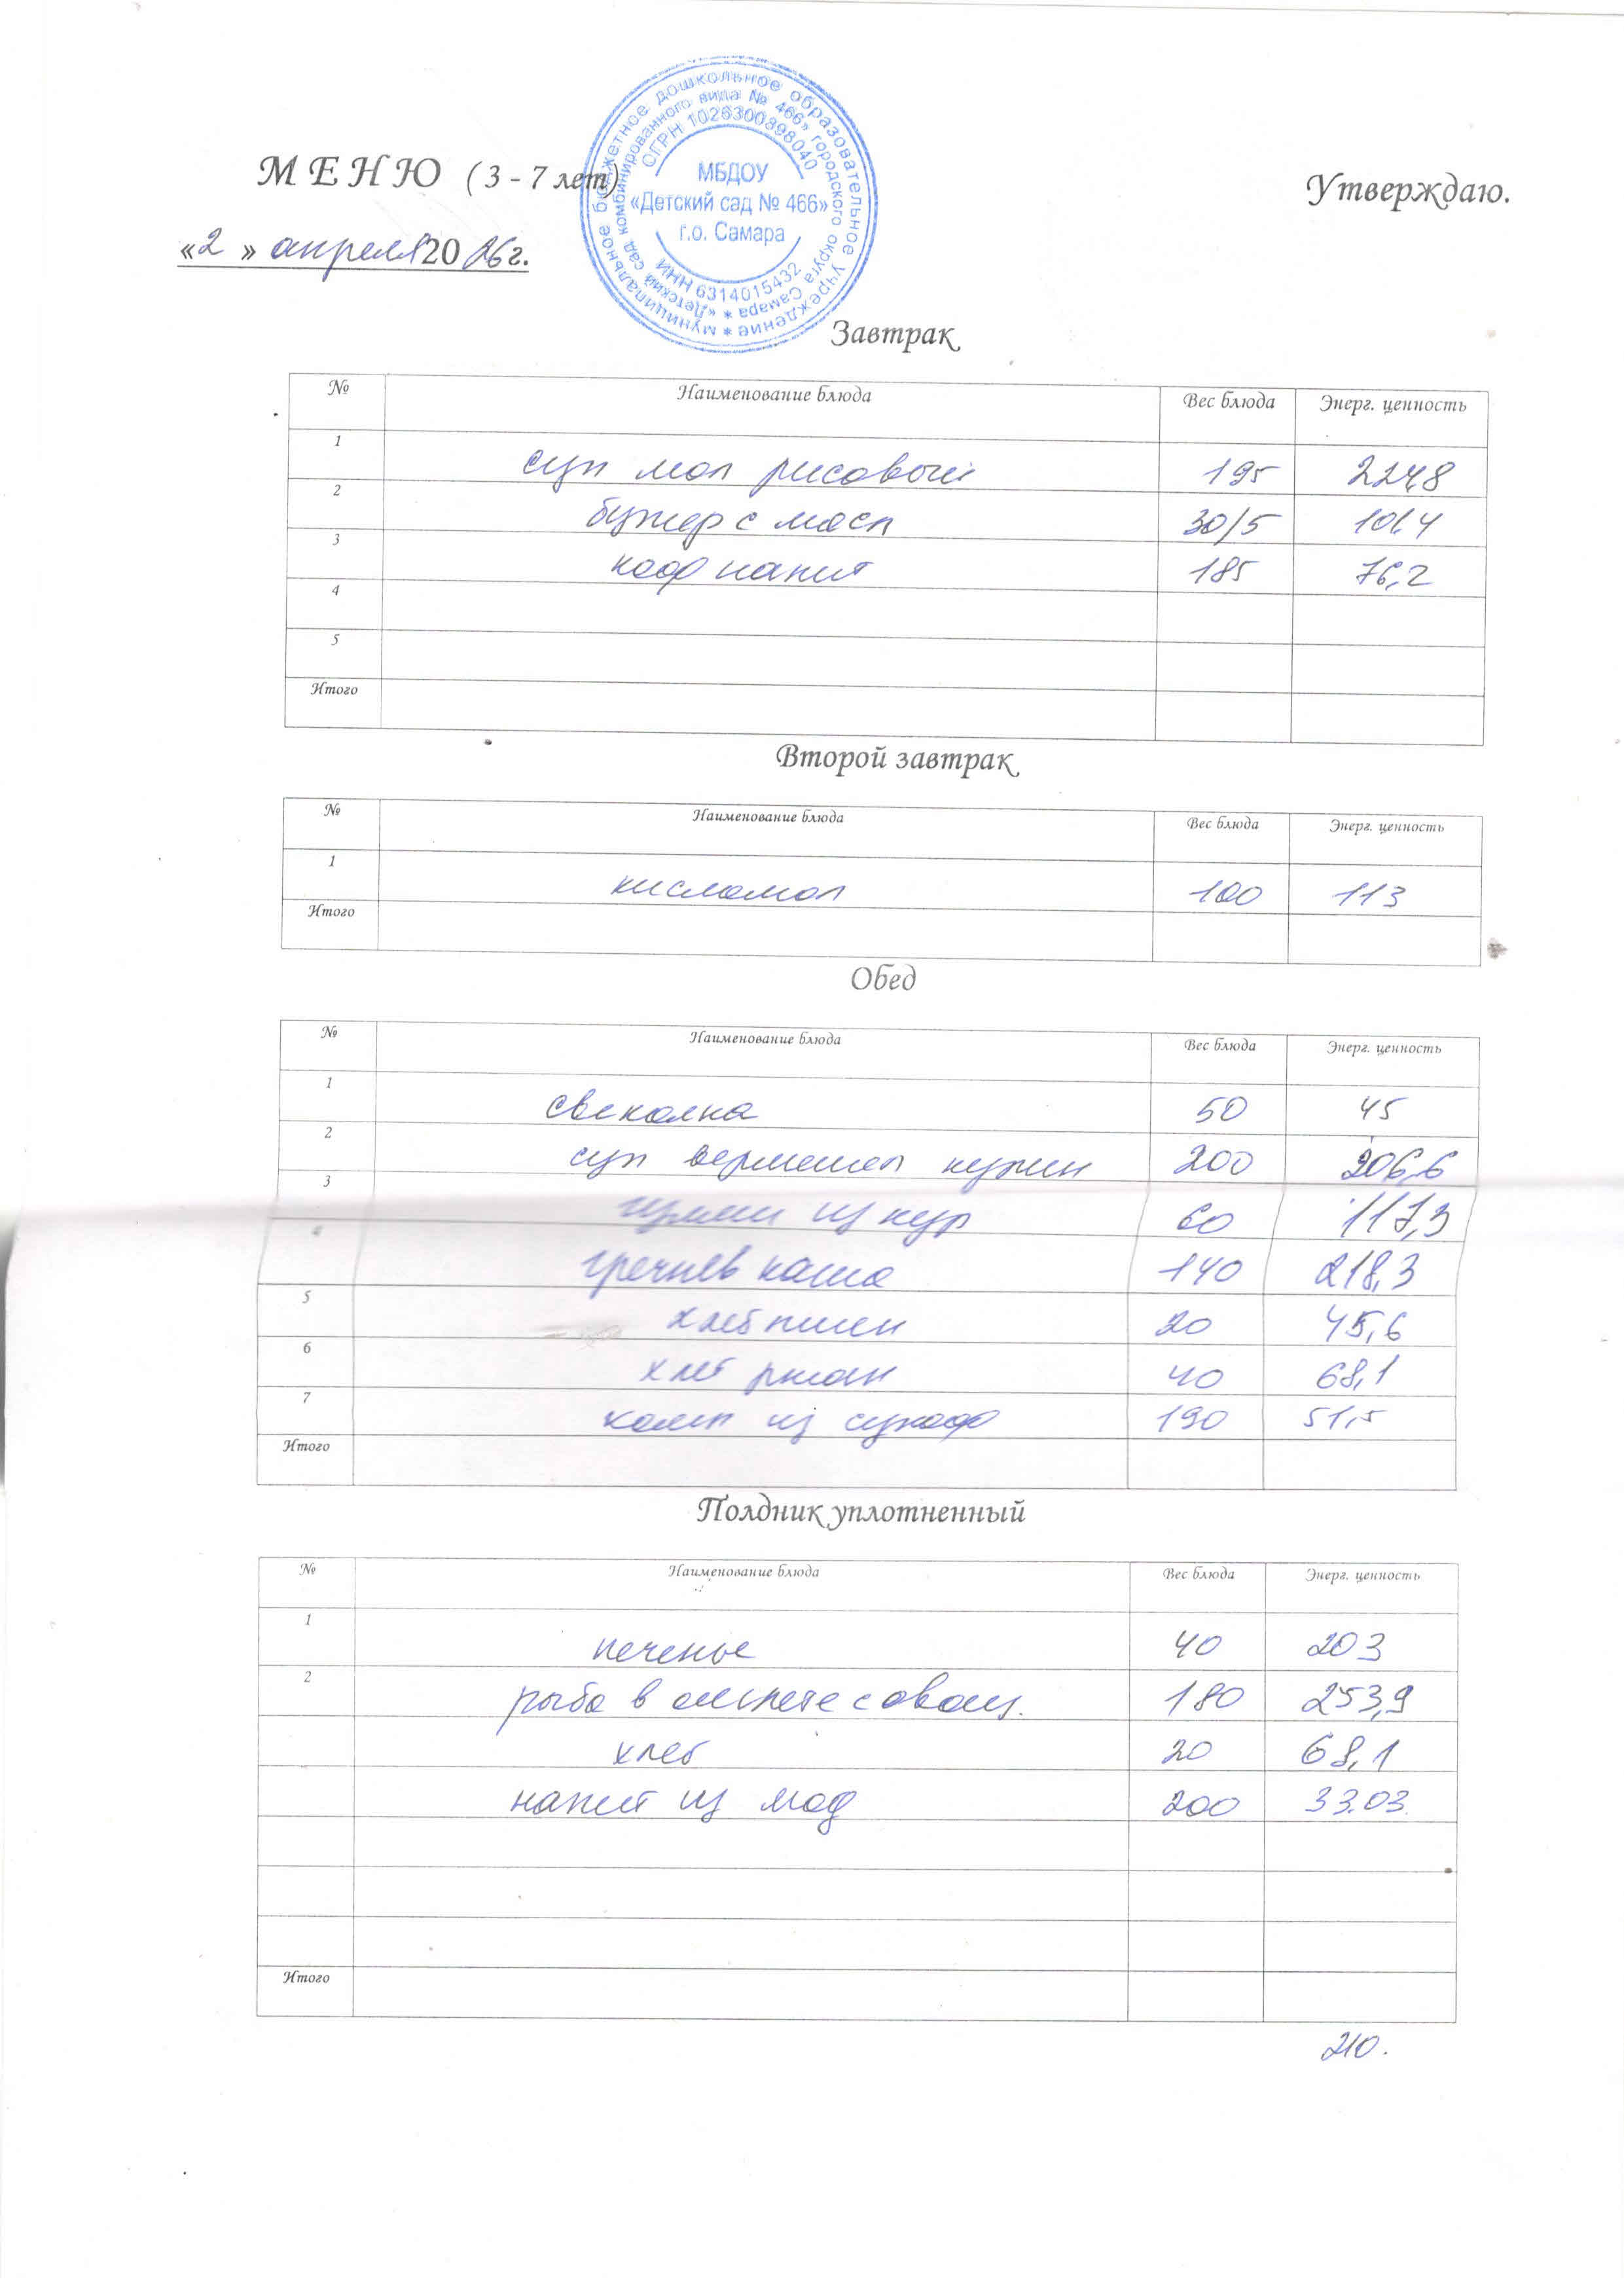 муниципальное бюджетное дошкольное образовательное учреждение
«Детский сад комбинированного вида № 466» городского округа Самара
ОГРН 1026300898040
МБДОУ
«Детский сад № 466»
г.о. Самара
ИНН 6314015432
МЕНЮ (3 - 7 лет)
Утверждаю.
«2» апреля 2026г.
Завтрак
№ Наименование блюда Вес блюда Энерг. ценность
1 суп мол рисовый 195
2 бутер с масл 30/5 101,4
3 коф напит 185 76,2
4
5
Итого
Второй завтрак
№ Наименование блюда Вес блюда Энерг. ценность
1 кисломол 100 113
Итого
Обед
№ Наименование блюда Вес блюда Энерг. ценность
1 свеколка 50 45
2 суп вермишел курин 200
3 из кур 60 117,3
4 гречнев каша 140 218,3
5 хлеб пшен 20 45,6
6 хлеб ржан 40 68,1
7 комп из сухоф 190 51,5
Итого
Полдник уплотненный
№ Наименование блюда Вес блюда Энерг. ценность
1 печенье 40 203
2 рыба в омлете с овощ. 180 253,9
хлеб 20 68,1
напит из 200 33.03.
Итого
210.